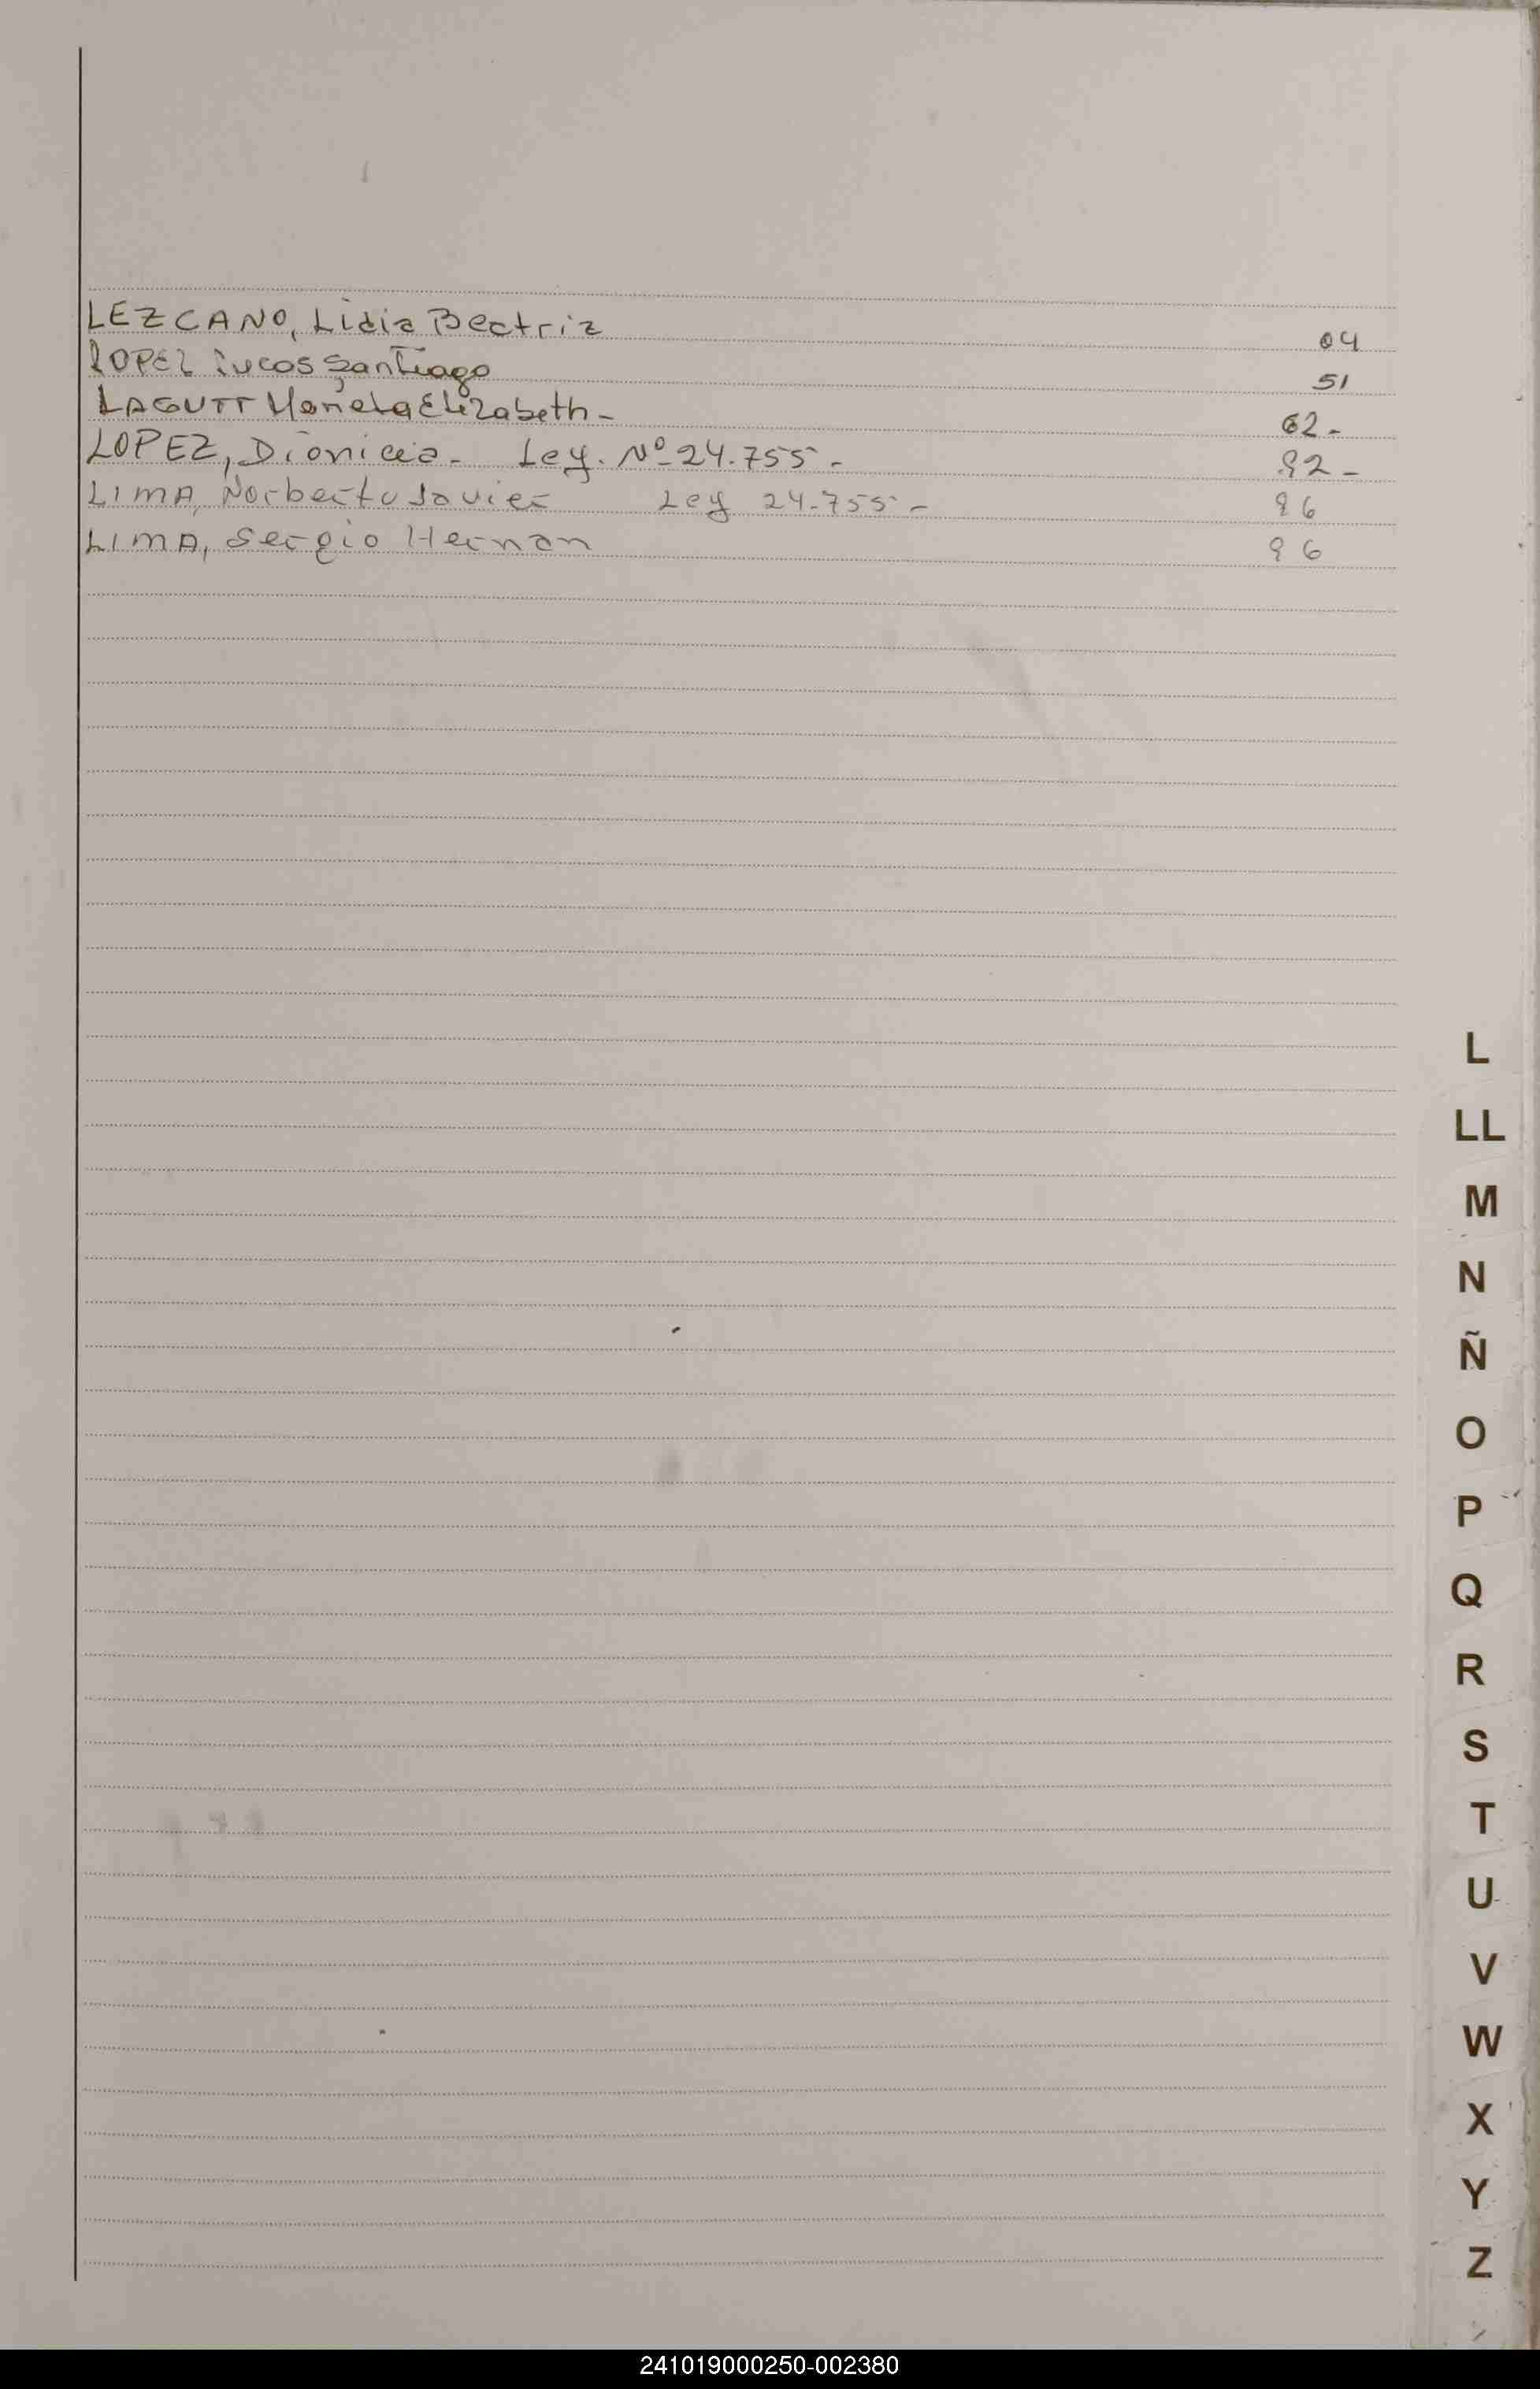 LEZCANO, Lidia Beatriz 04
LOPEZ Lucas Santiago 51
LAGUTT Mariela Elizabeth - 62 -
LOPEZ, Dionicia - Ley. Nº 24.755 - 92 -
LIMA, Norberto Javier Ley 24.755 - 96
LIMA, Sergio Hernan 96
L
LL
M
N
Ñ
O
P
Q
R
S
T
U
V
W
X
Y
Z
241019000250-002380